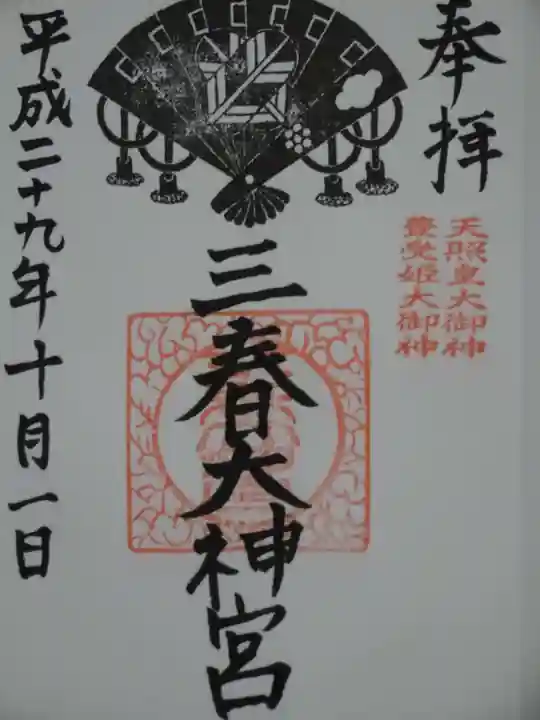 奉拝
天照皇大御神
豊受姫大御神
三春大神宮
平成二十九年十月一日